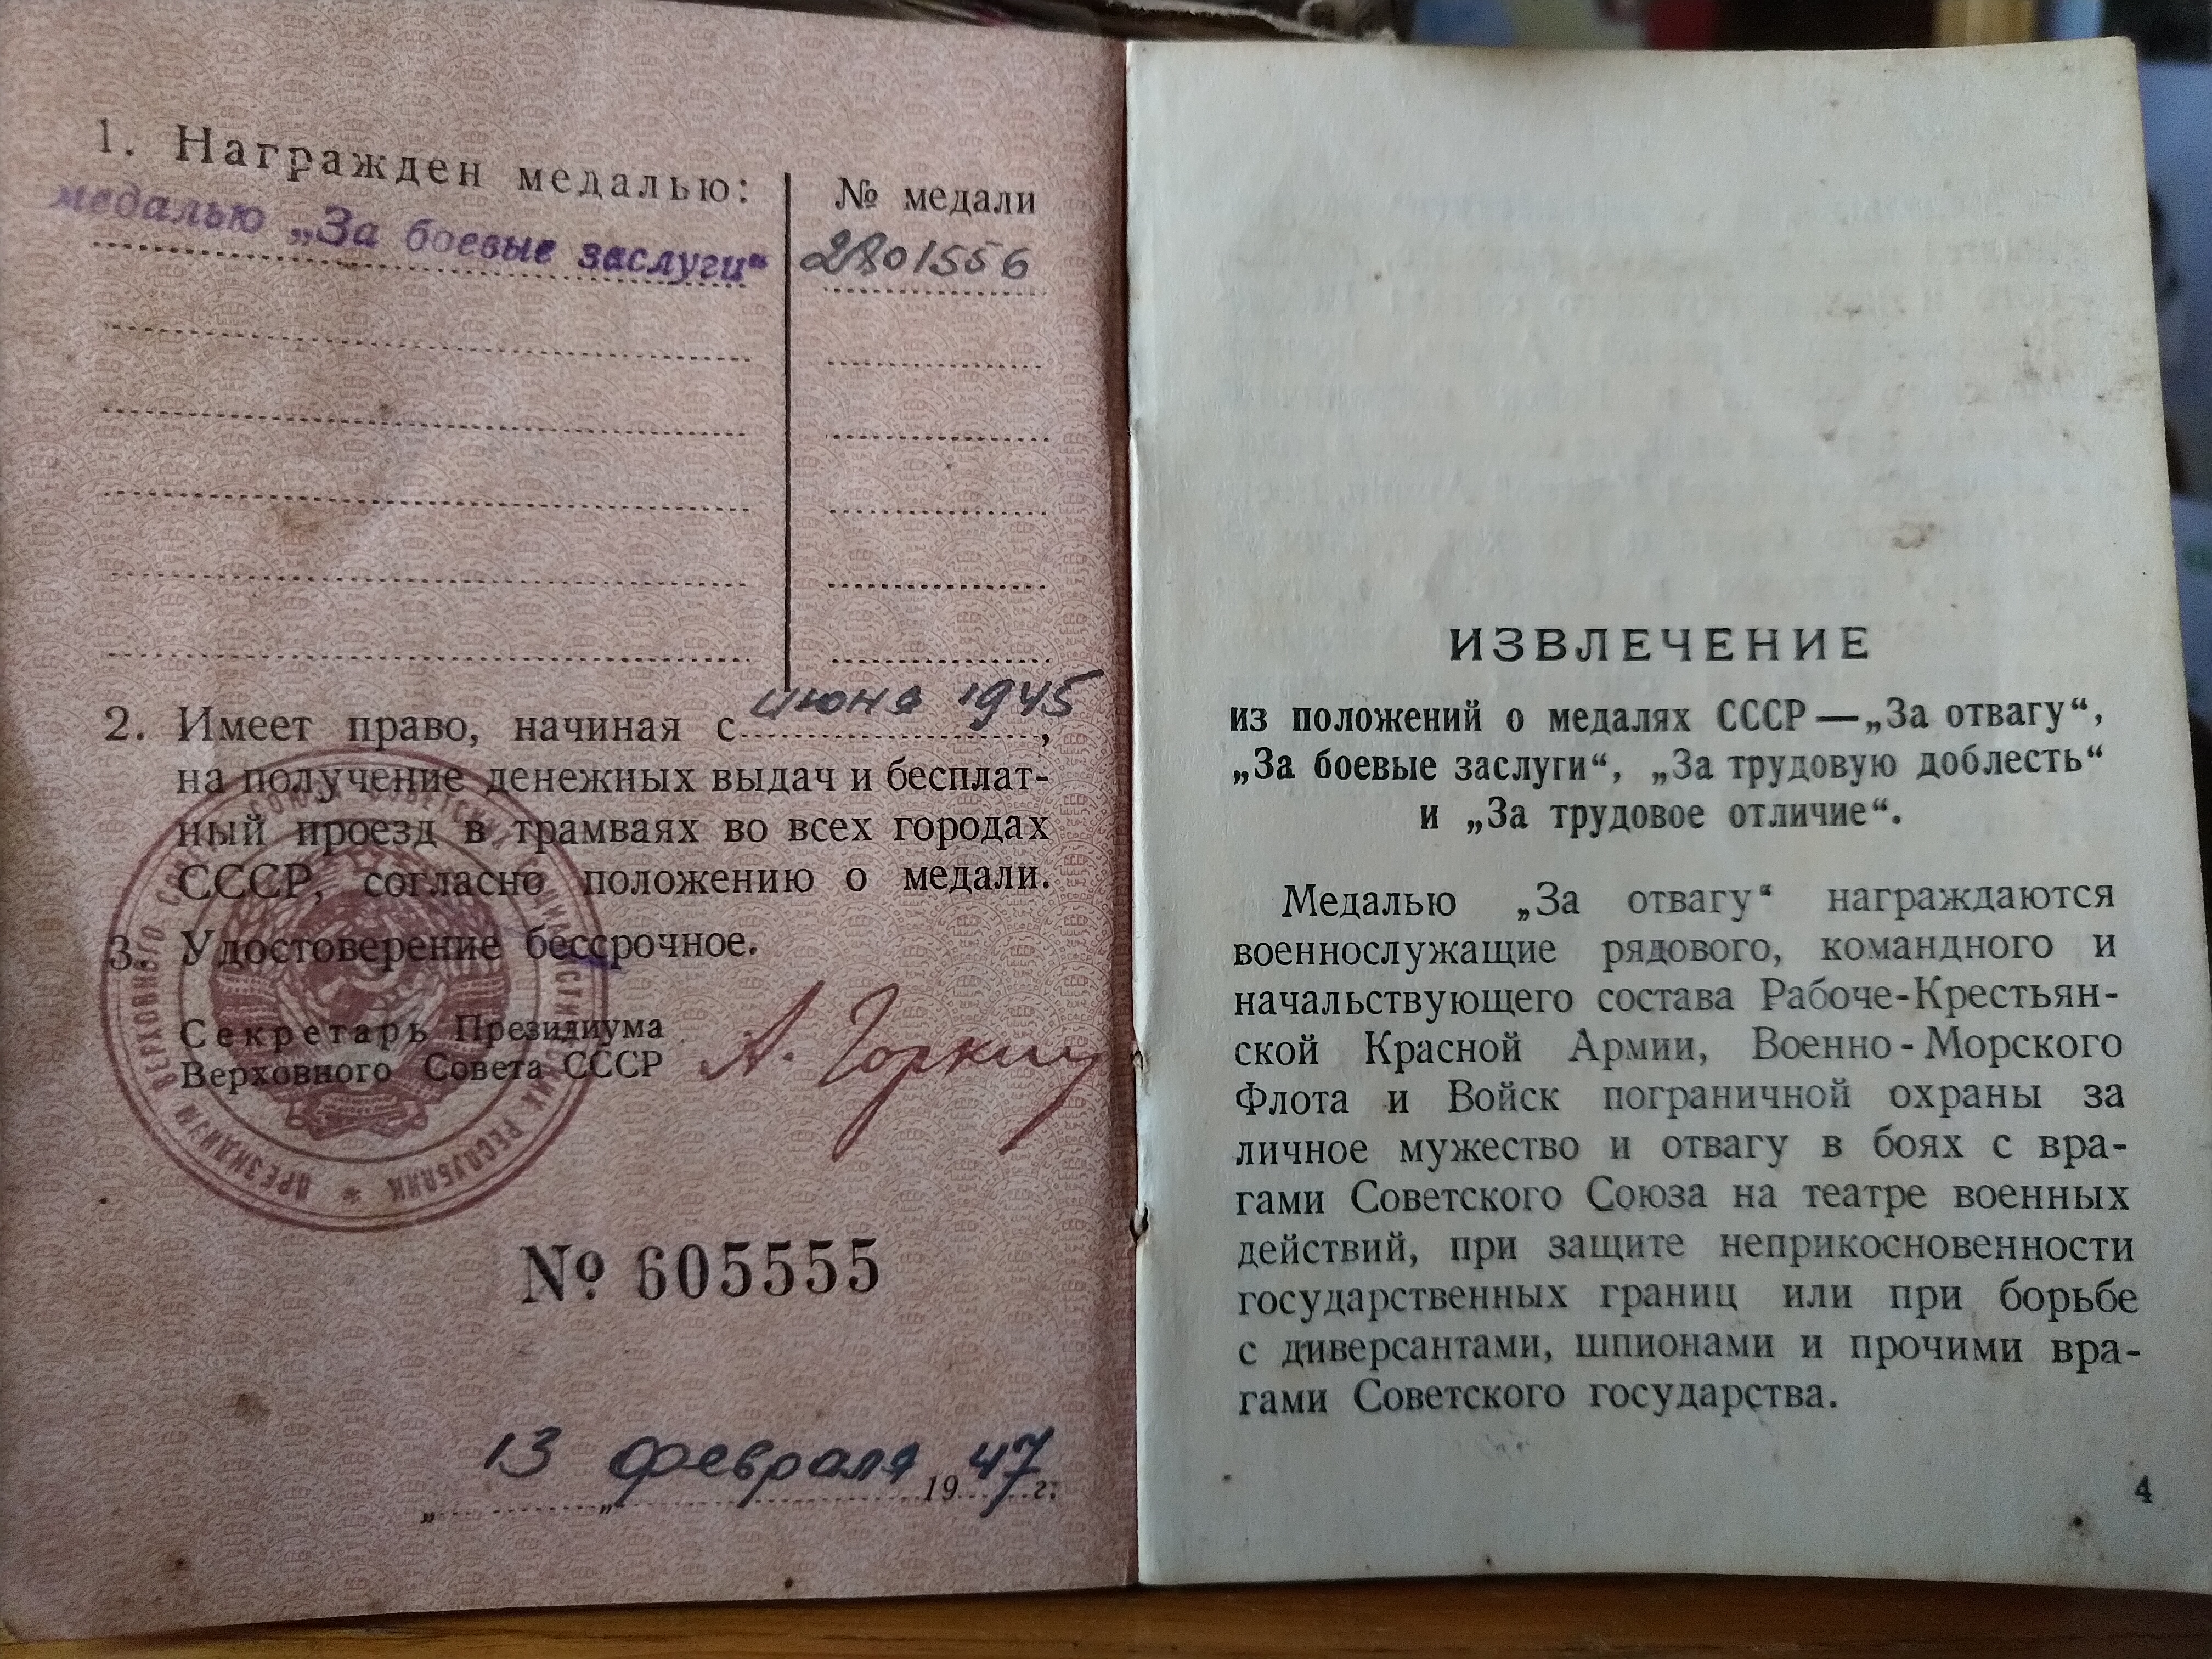 1. Награжден медалью:
№ медали
медалью „За боевые заслуги“
2801556
2. Имеет право, начиная с июня 1945,
на получение денежных выдач и бесплат-
ный проезд в трамваях во всех городах
СССР, согласно положению о медали.
3. Удостоверение бессрочное.
Секретарь Президиума
Верховного Совета СССР
А. Горкин
ПРЕЗИДИУМ ВЕРХОВНОГО СОВЕТА СОЮЗА СОВЕТСКИХ СОЦИАЛИСТИЧЕСКИХ РЕСПУБЛИК *
№ 605555
„13„ февраля 1947 г.
ИЗВЛЕЧЕНИЕ
из положений о медалях СССР—„За отвагу“,
„За боевые заслуги“, „За трудовую доблесть“
и „За трудовое отличие“.
Медалью „За отвагу“ награждаются
военнослужащие рядового, командного и
начальствующего состава Рабоче-Крестьян-
ской Красной Армии, Военно-Морского
Флота и Войск пограничной охраны за
личное мужество и отвагу в боях с вра-
гами Советского Союза на театре военных
действий, при защите неприкосновенности
государственных границ или при борьбе
с диверсантами, шпионами и прочими вра-
гами Советского государства.
4